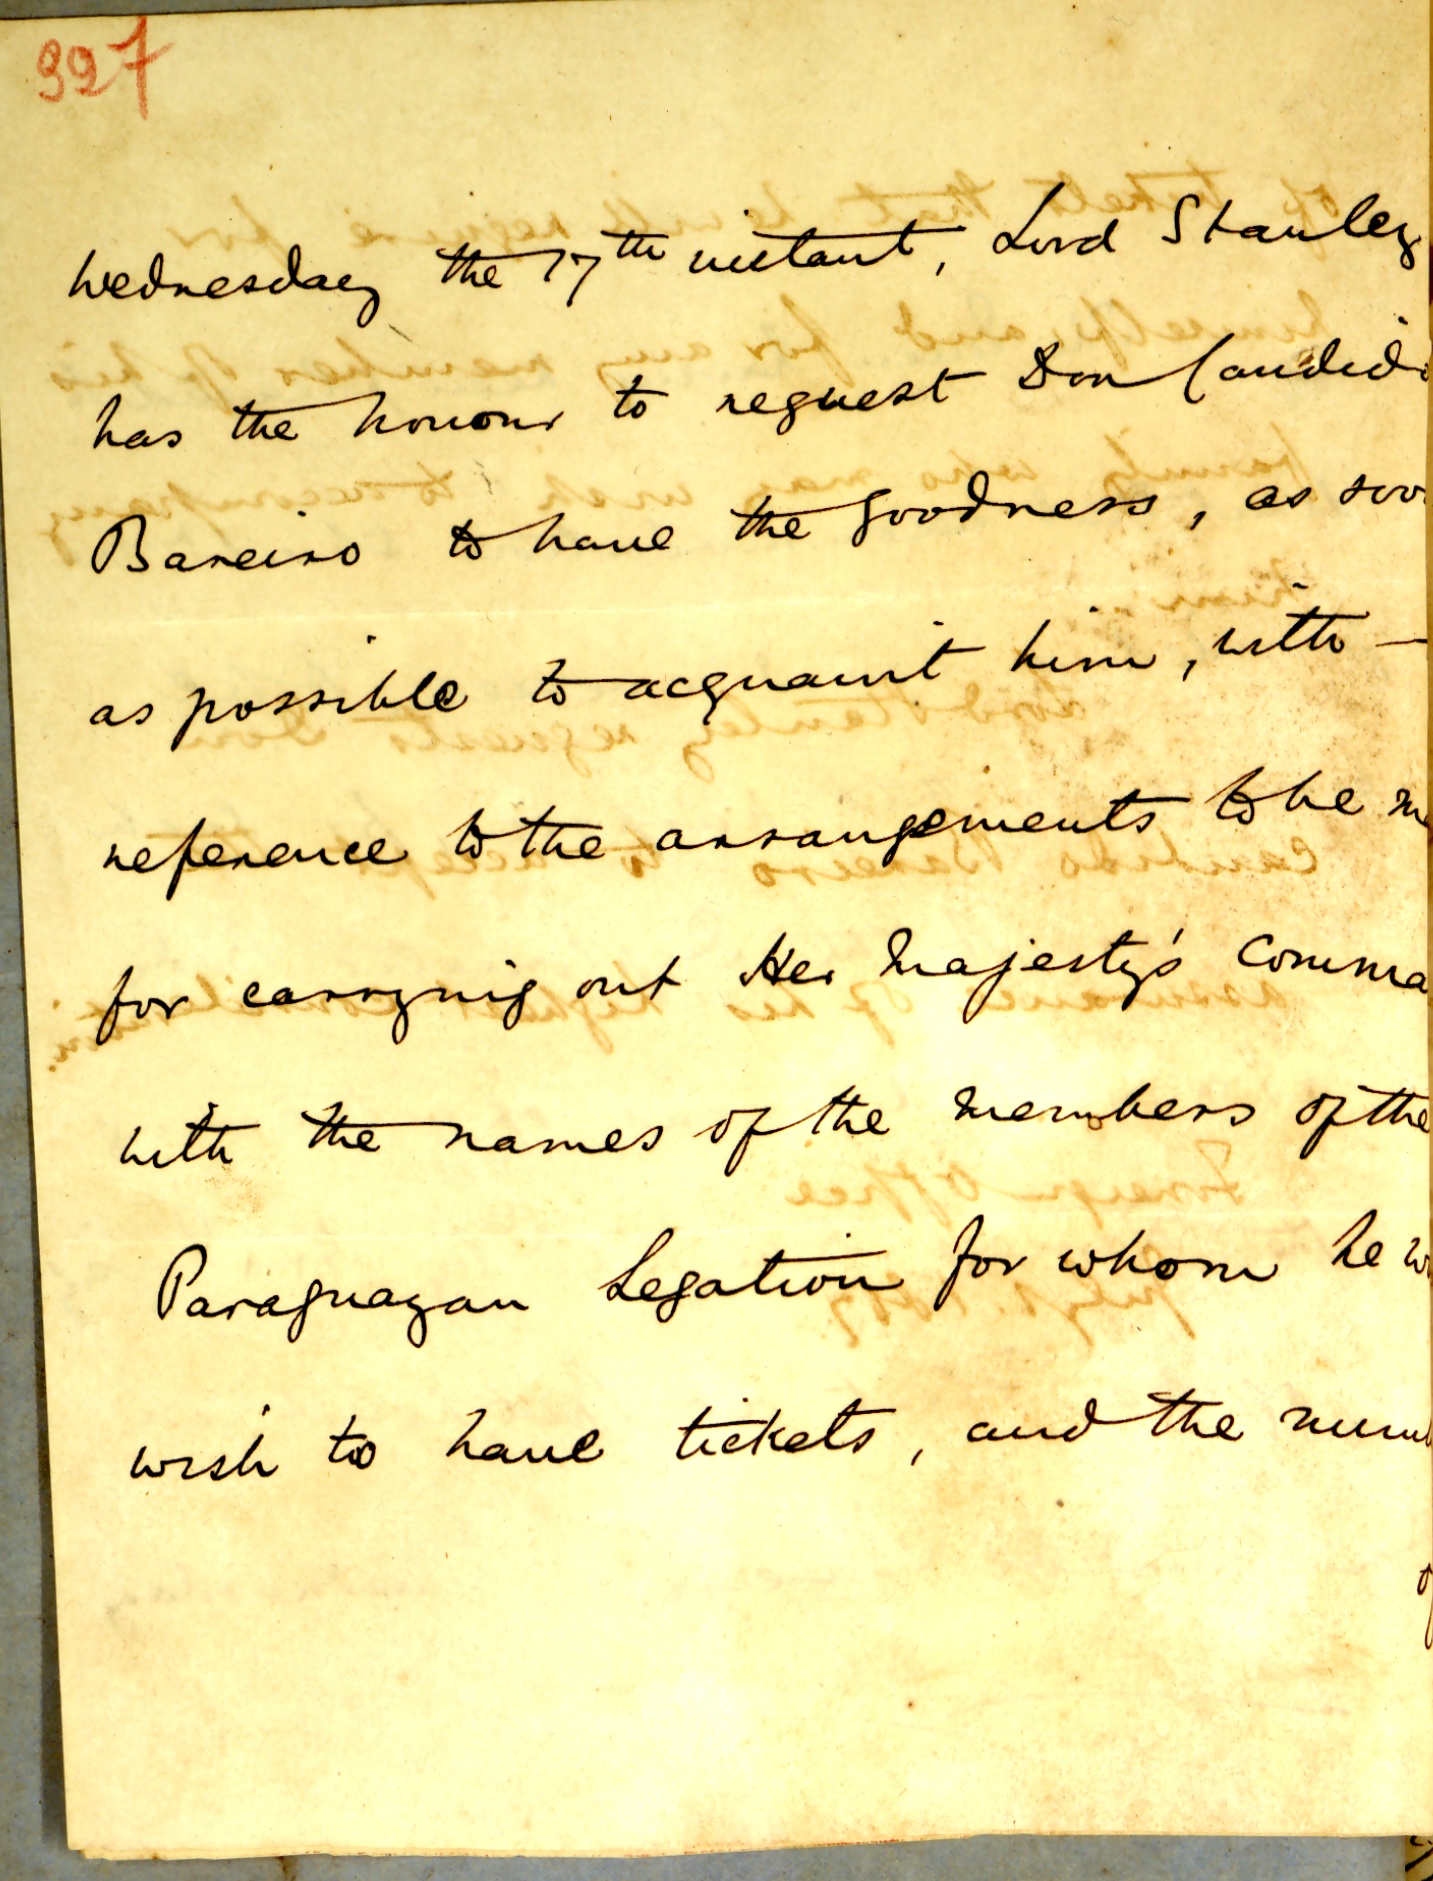 927
Wednesday the 17th instant, Lord Stanley
has the honour to request Don Candido
Bareiro to have the goodness, as soo
as possible to acquaint him, with —
reference to the arrangements to be m
for carrying out Her Majesty's Comma
with the names of the members of the
Paraguayan Legation for whom he w
wish to have tickets, and the numb
of